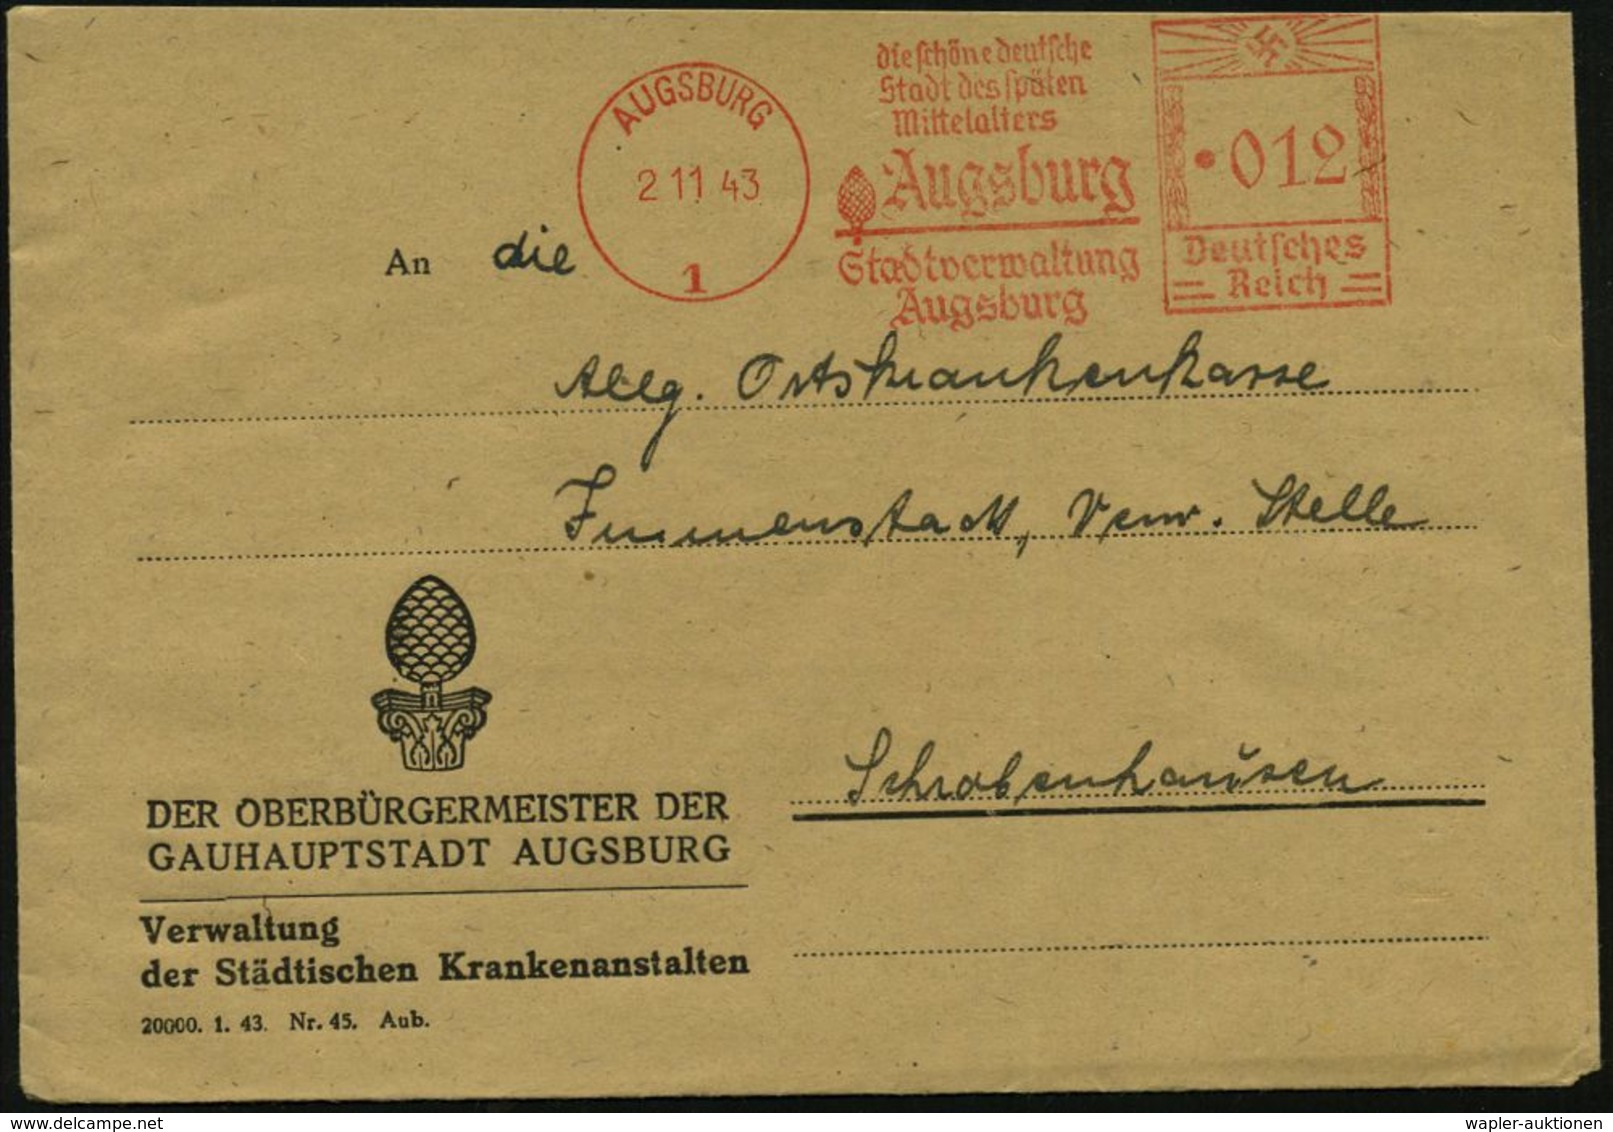 AUGSBURG
2 11 43
1
die schöne deutsche
Stadt des späten
Mittelalters
Augsburg
Stadtverwaltung
Augsburg
012
Deutsches
Reich
An die
Allg. Ortskrankenkasse
Immenstadt, Verw. Stelle
Schrobenhausen
DER OBERBÜRGERMEISTER DER
GAUHAUPTSTADT AUGSBURG
Verwaltung
der Städtischen Krankenanstalten
20000. 1. 43. Nr. 45. Aub.
wapler-auktionen